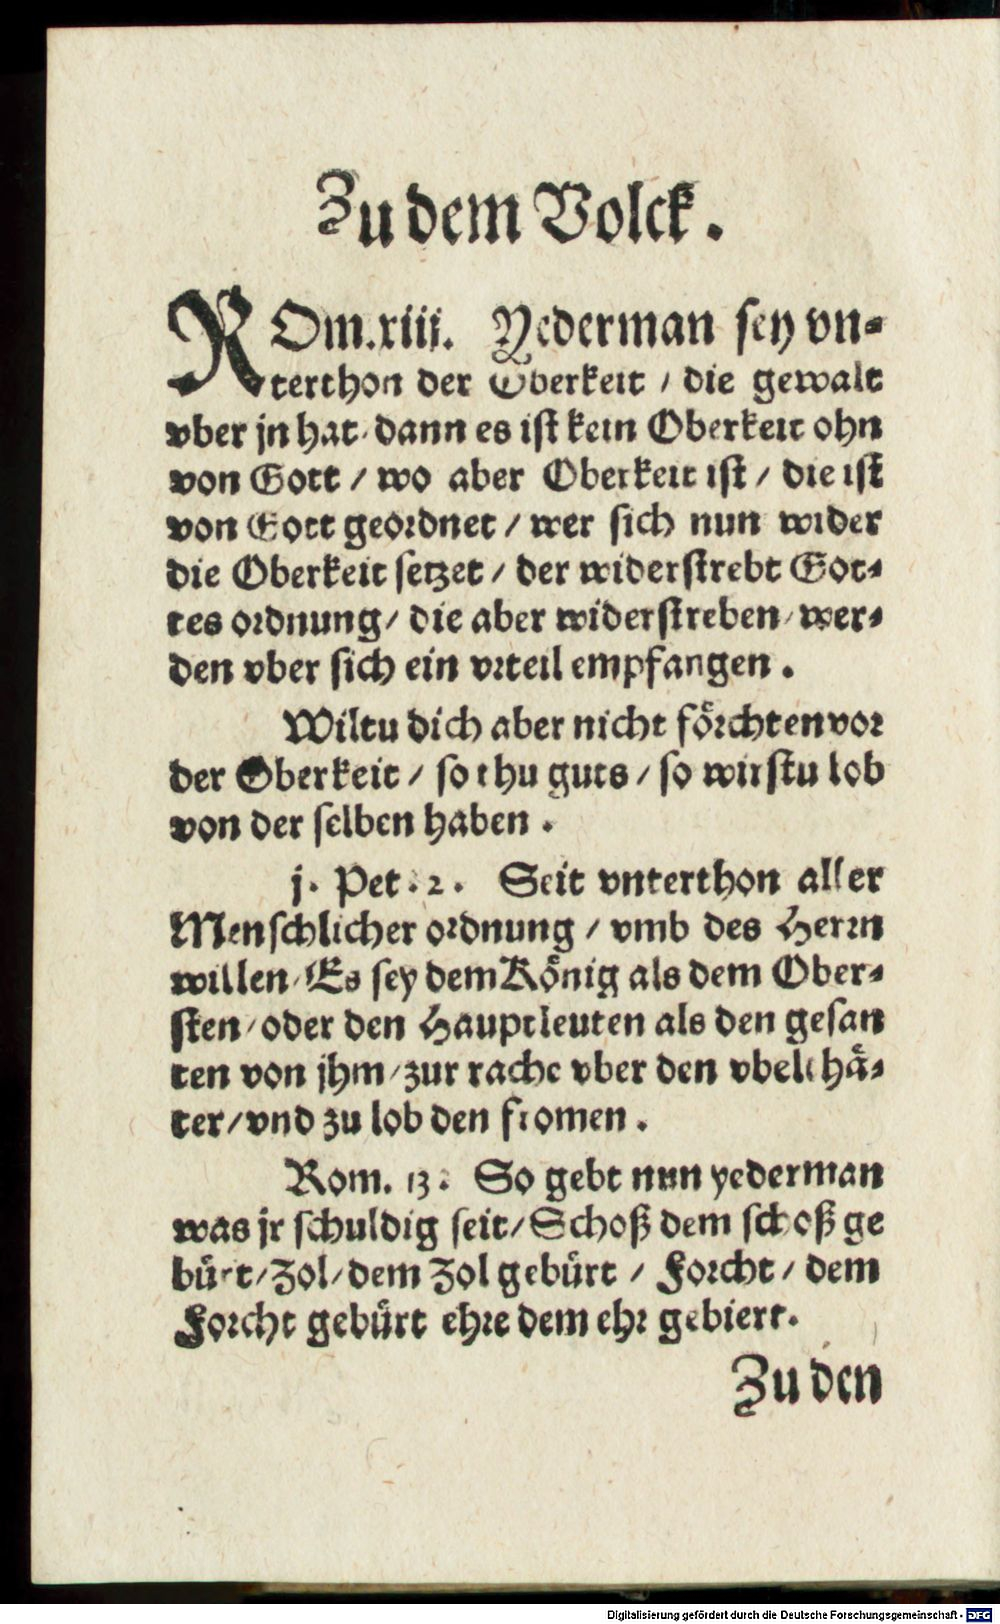 Zu dem Volck.
ROm. xiii. Yederman sey vn⸗
terthon der Oberkeit / die gewalt
vber jn hat / dann es ist kein Oberkeit ohn
von Gott / wo aber Oberkeit ist / die ist
von Gott geordnet / wer sich nun wider
die Oberkeit setzet / der widerstrebt Got⸗
tes ordnung / die aber widerstreben / wer⸗
den vber sich ein vrteil empfangen.
Wiltu dich aber nicht förchten vor
der Oberkeit / so thu guts / so wirstu lob
von der selben haben.
j. Pet. 2. Seit vnterthon aller
Menschlicher ordnung / vmb des Herrn
willen / Es sey dem König als dem Ober⸗
sten / oder den Hauptleuten als den gesan
ten von jhm / zur rache vber den vbelthä⸗
ter / vnd zu lob den fromen.
Rom. 13. So gebt nun yederman
was jr schuldig seit / Schoß dem schoß ge
bürt / Zol / dem Zol gebürt / Forcht / dem
Forcht gebürt ehre dem ehr gebiert.
Zu den
Digitalisierung gefördert durch die Deutsche Forschungsgemeinschaft - DFG